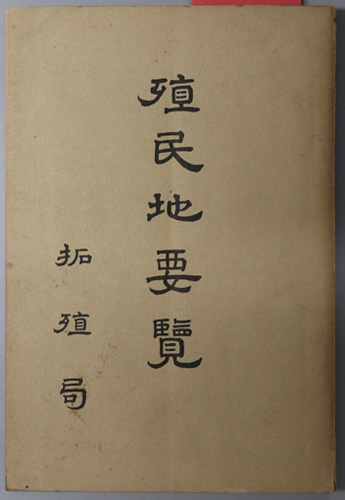 殖民地要覽
拓殖局